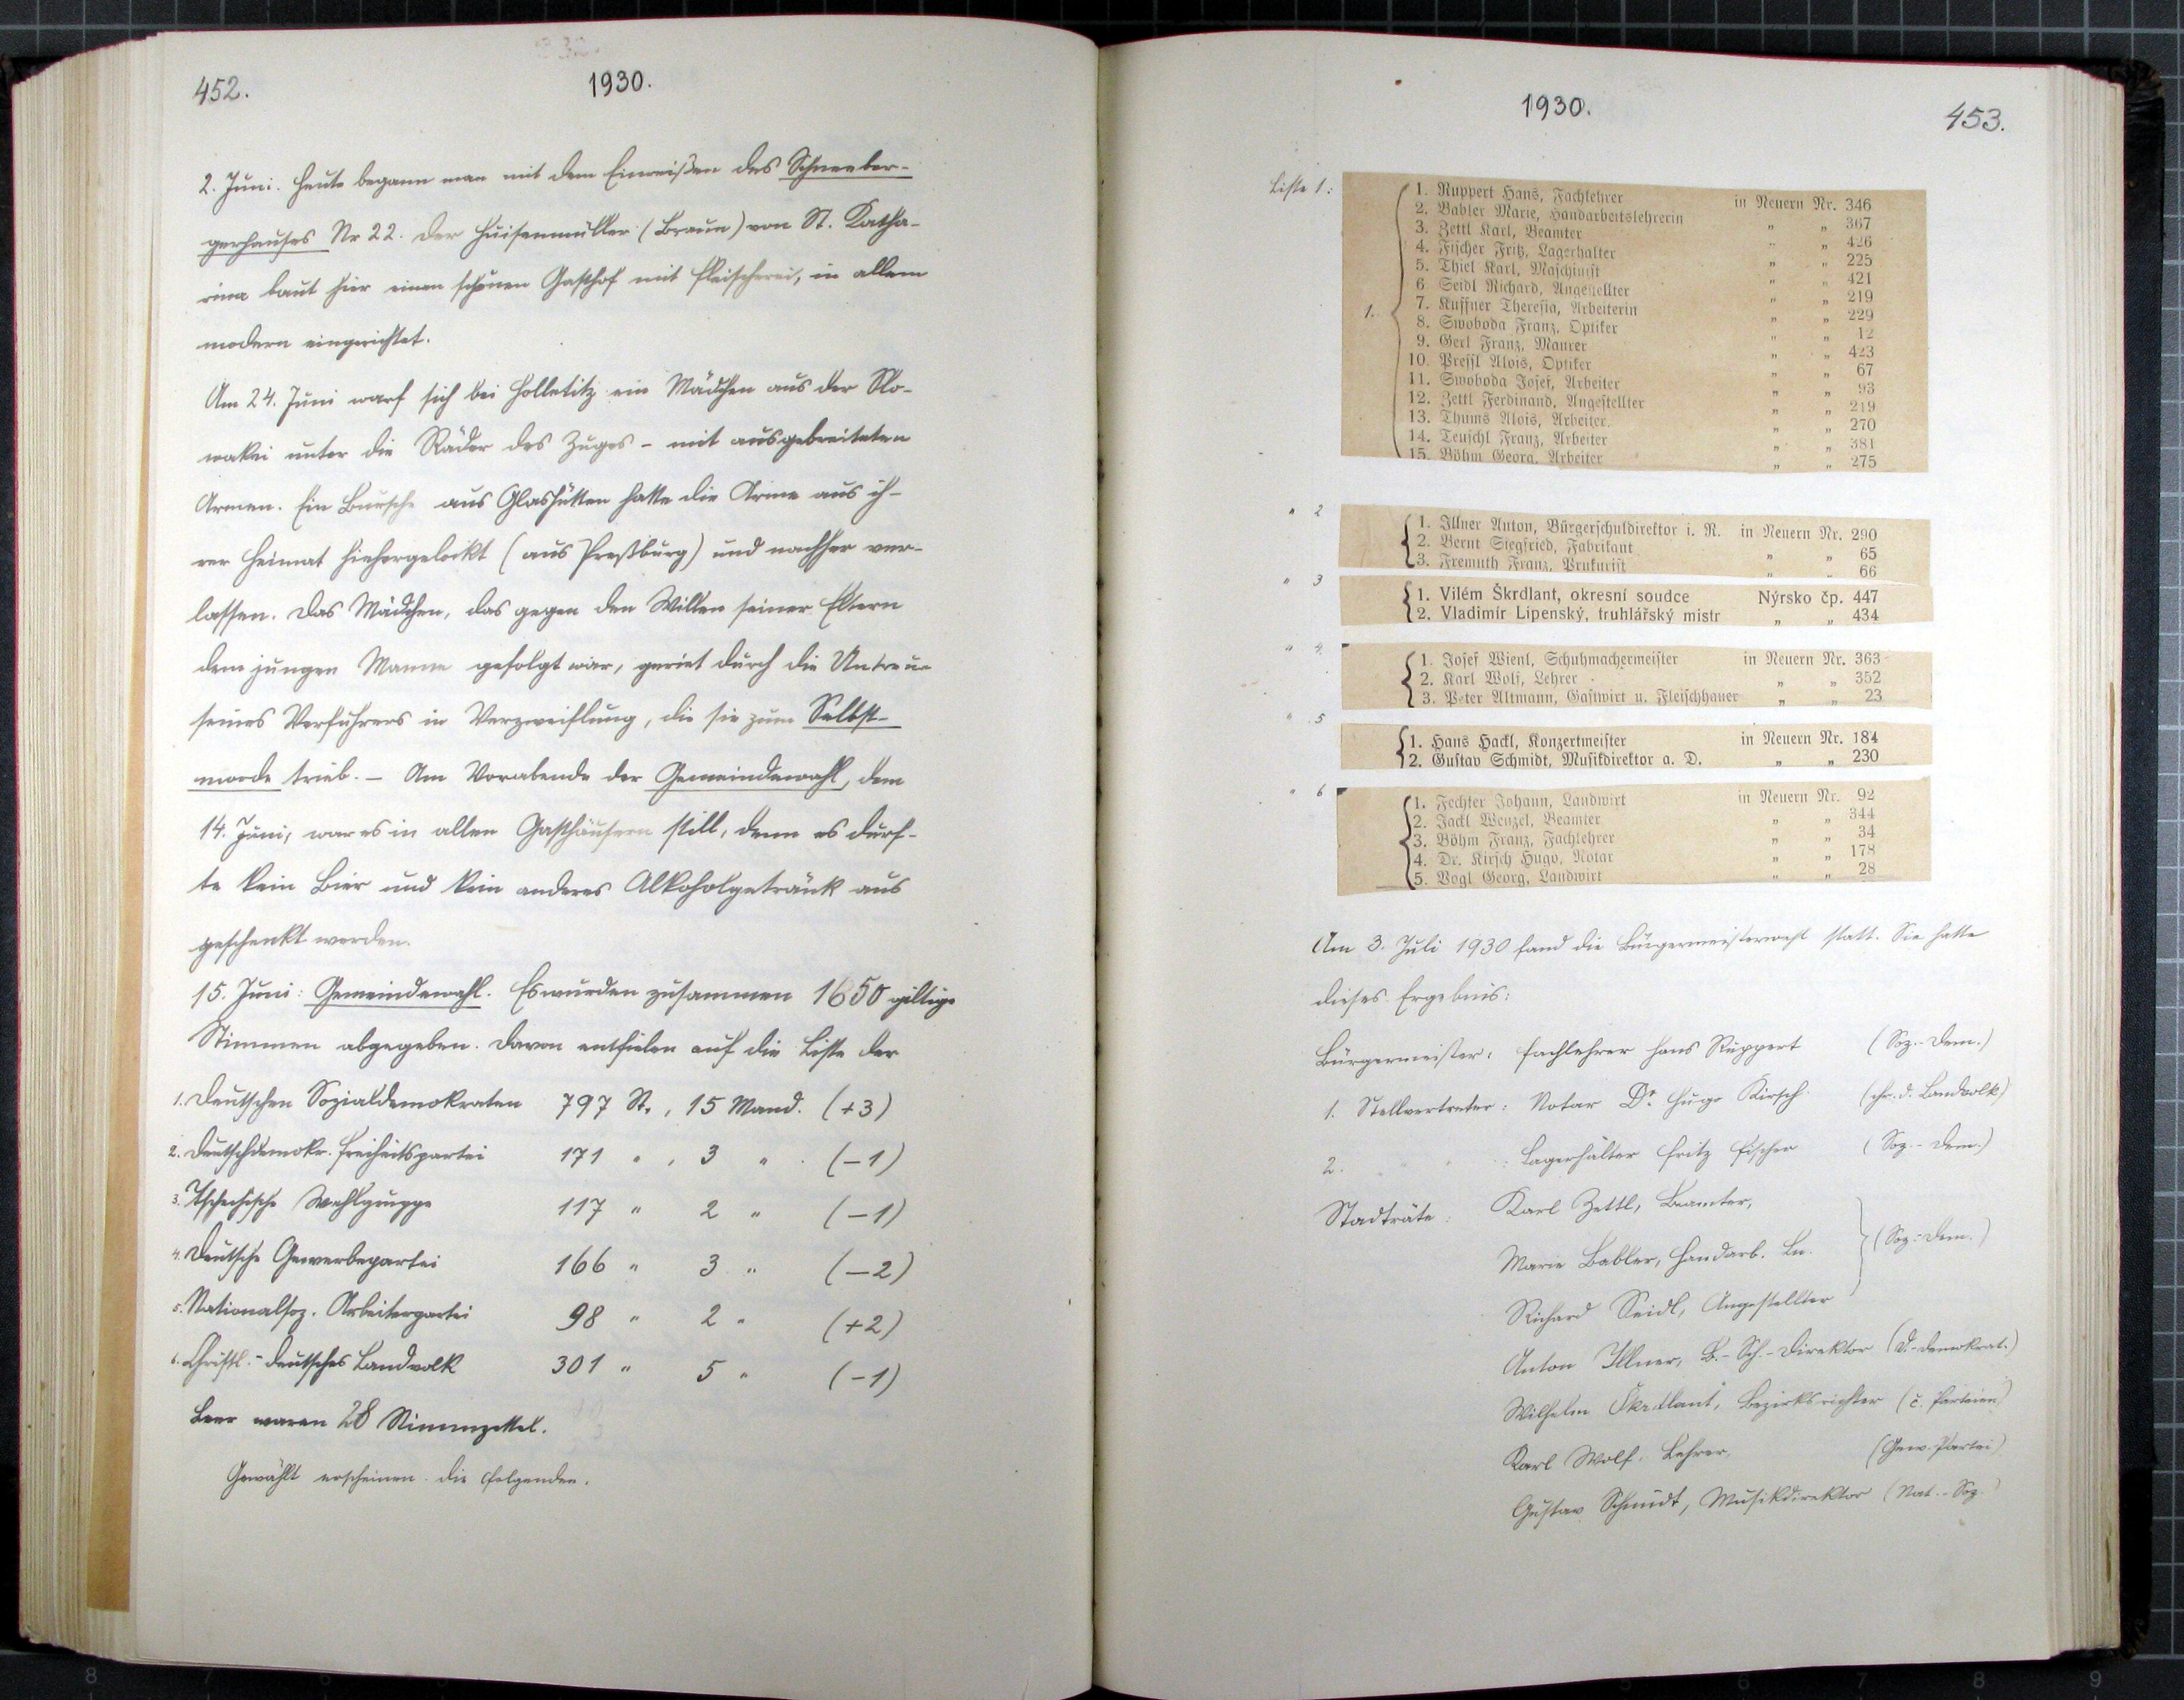 452.
1930.
2. Juni. Heute begann man mit dem Einreißen des Schneeber-
gerhauses Nr 22. Der Huisenmüller (Braun) von St. Katha-
rina baut hier einen schönen Gasthof mit Fleischerei, in allem
modern eingerichtet.
Am 24. Juni warf sich bei Holletitz ein Mädchen aus der Slo-
wakei unter die Räder des Zuges – mit ausgebreiteten
Armen. Ein Bursche aus Glashütten hatte die Arme aus ih-
rer Heimat hiehergelockt (aus Preßburg) und nachher ver-
lassen. Das Mädchen, das gegen den Willen seiner Eltern
dem jungen Manne gefolgt war, geriet durch die Untreue
seines Verführers in Verzweiflung, die sie zum Selbst-
morde trieb. – Am Vorabende der Gemeindewahl, dem
14. Juni, war es in allen Gasthäusern still, denn es durf-
te kein Bier und kein anderes Alkoholgetränk aus
geschenkt werden.
15. Juni: Gemeindewahl. Es wurden zusammen 1650 giltige
Stimmen abgegeben. Davon entfielen auf die Liste der
1. Deutschen Sozialdemokraten 797 St., 15 Mand. (+3)
2. Deutschdemokr. Freiheitspartei 171 " , 3 " . (–1)
3. Tschechische Wahlgruppe 117 " 2 " (–1)
4. Deutsche Gewerbepartei 166 " 3 " (–2)
5. Nationalsoz. Arbeiterpartei 98 " 2 " (+2)
6. Christl.-deutsches Landvolk 301 " 5 " (–1)
Leer waren 28 Stimmzettel.
Gewählt erscheinen die folgenden.
1930.
453.
Liste 1:
1.
1. Ruppert Hans, Fachlehrer in Neuern Nr. 346
2. Babler Marie, Handarbeitslehrerin " " 367
3. Zettl Karl, Beamter " " 426
4. Fischer Fritz, Lagerhalter " " 225
5. Thiel Karl, Maschinist " " 421
6 Seidl Richard, Angestellter " " 219
7. Kuffner Theresia, Arbeiterin " " 229
8. Swoboda Franz, Optiker " " 12
9. Gerl Franz, Maurer " " 423
10. Pressl Alois, Optiker " " 67
11. Swoboda Josef, Arbeiter " " 93
12. Zettl Ferdinand, Angestellter " " 219
13. Thums Alois, Arbeiter. " " 270
14. Teuschl Franz, Arbeiter " " 381
15. Böhm Georg, Arbeiter " " 275
" 2
1. Illner Anton, Bürgerschuldirektor i. R. in Neuern Nr. 290
2. Bernt Siegfried, Fabrikant " " 65
3. Fremuth Franz, Prokurist " " 66
" 3
1. Vilém Škrdlant, okresní soudce Nýrsko čp. 447
2. Vladimír Lipenský, truhlářský mistr " " 434
" 4.
1. Josef Wienl, Schuhmachermeister in Neuern Nr. 363
2. Karl Wolf, Lehrer " " 352
3. Peter Altmann, Gastwirt u. Fleischhauer " " 23
" 5
1. Hans Hackl, Konzertmeister in Neuern Nr. 184
2. Gustav Schmidt, Musikdirektor a. D. " " 230
" 6
1. Fechter Johann, Landwirt in Neuern Nr. 92
2. Jackl Wenzel, Beamter " " 344
3. Böhm Franz, Fachlehrer " " 34
4. Dr. Kirsch Hugo, Notar " " 178
5. Vogl Georg, Landwirt " " 28
Am 3. Juli 1930 fand die Bürgermeisterwahl statt. Sie hatte
dieses Ergebnis:
Bürgermeister: Fachlehrer Hans Ruppert (Soz.-Dem.)
1. Stellvertreter: Notar Dr. Hugo Kirsch (chr. d. Landvolk)
2. " : Lagerhalter Fritz Fischer (Soz.-Dem.)
Stadträte: Karl Zettl, Beamter,
Marie Babler, Handarb. Ln. (Soz.-Dem.)
Richard Seidl, Angestellter
Anton Illner, B.-Sch.-Direktor (D.-demokrat.)
Wilhelm Škrdlant, Bezirksrichter (č. Parteien)
Karl Wolf, Lehrer, (Gew. Partei)
Gustav Schmidt, Musikdirektor (Nat.-Soz.)